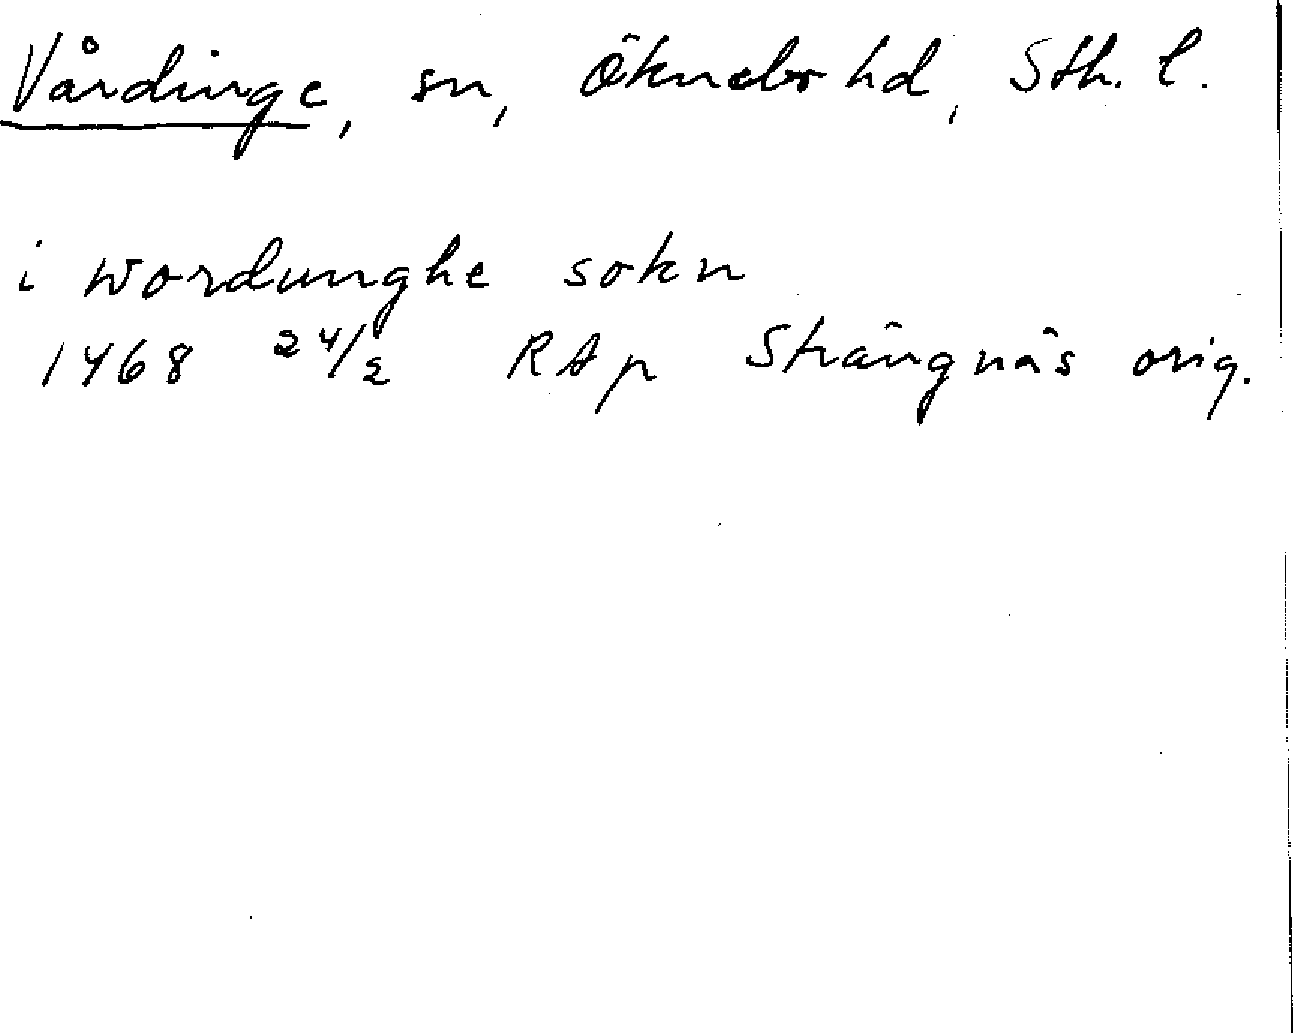 Vårdinge, sn, Öknebo hd, Sth. l.
i wordunghe sokn
1468 24/2 RAp Strängnäs orig.